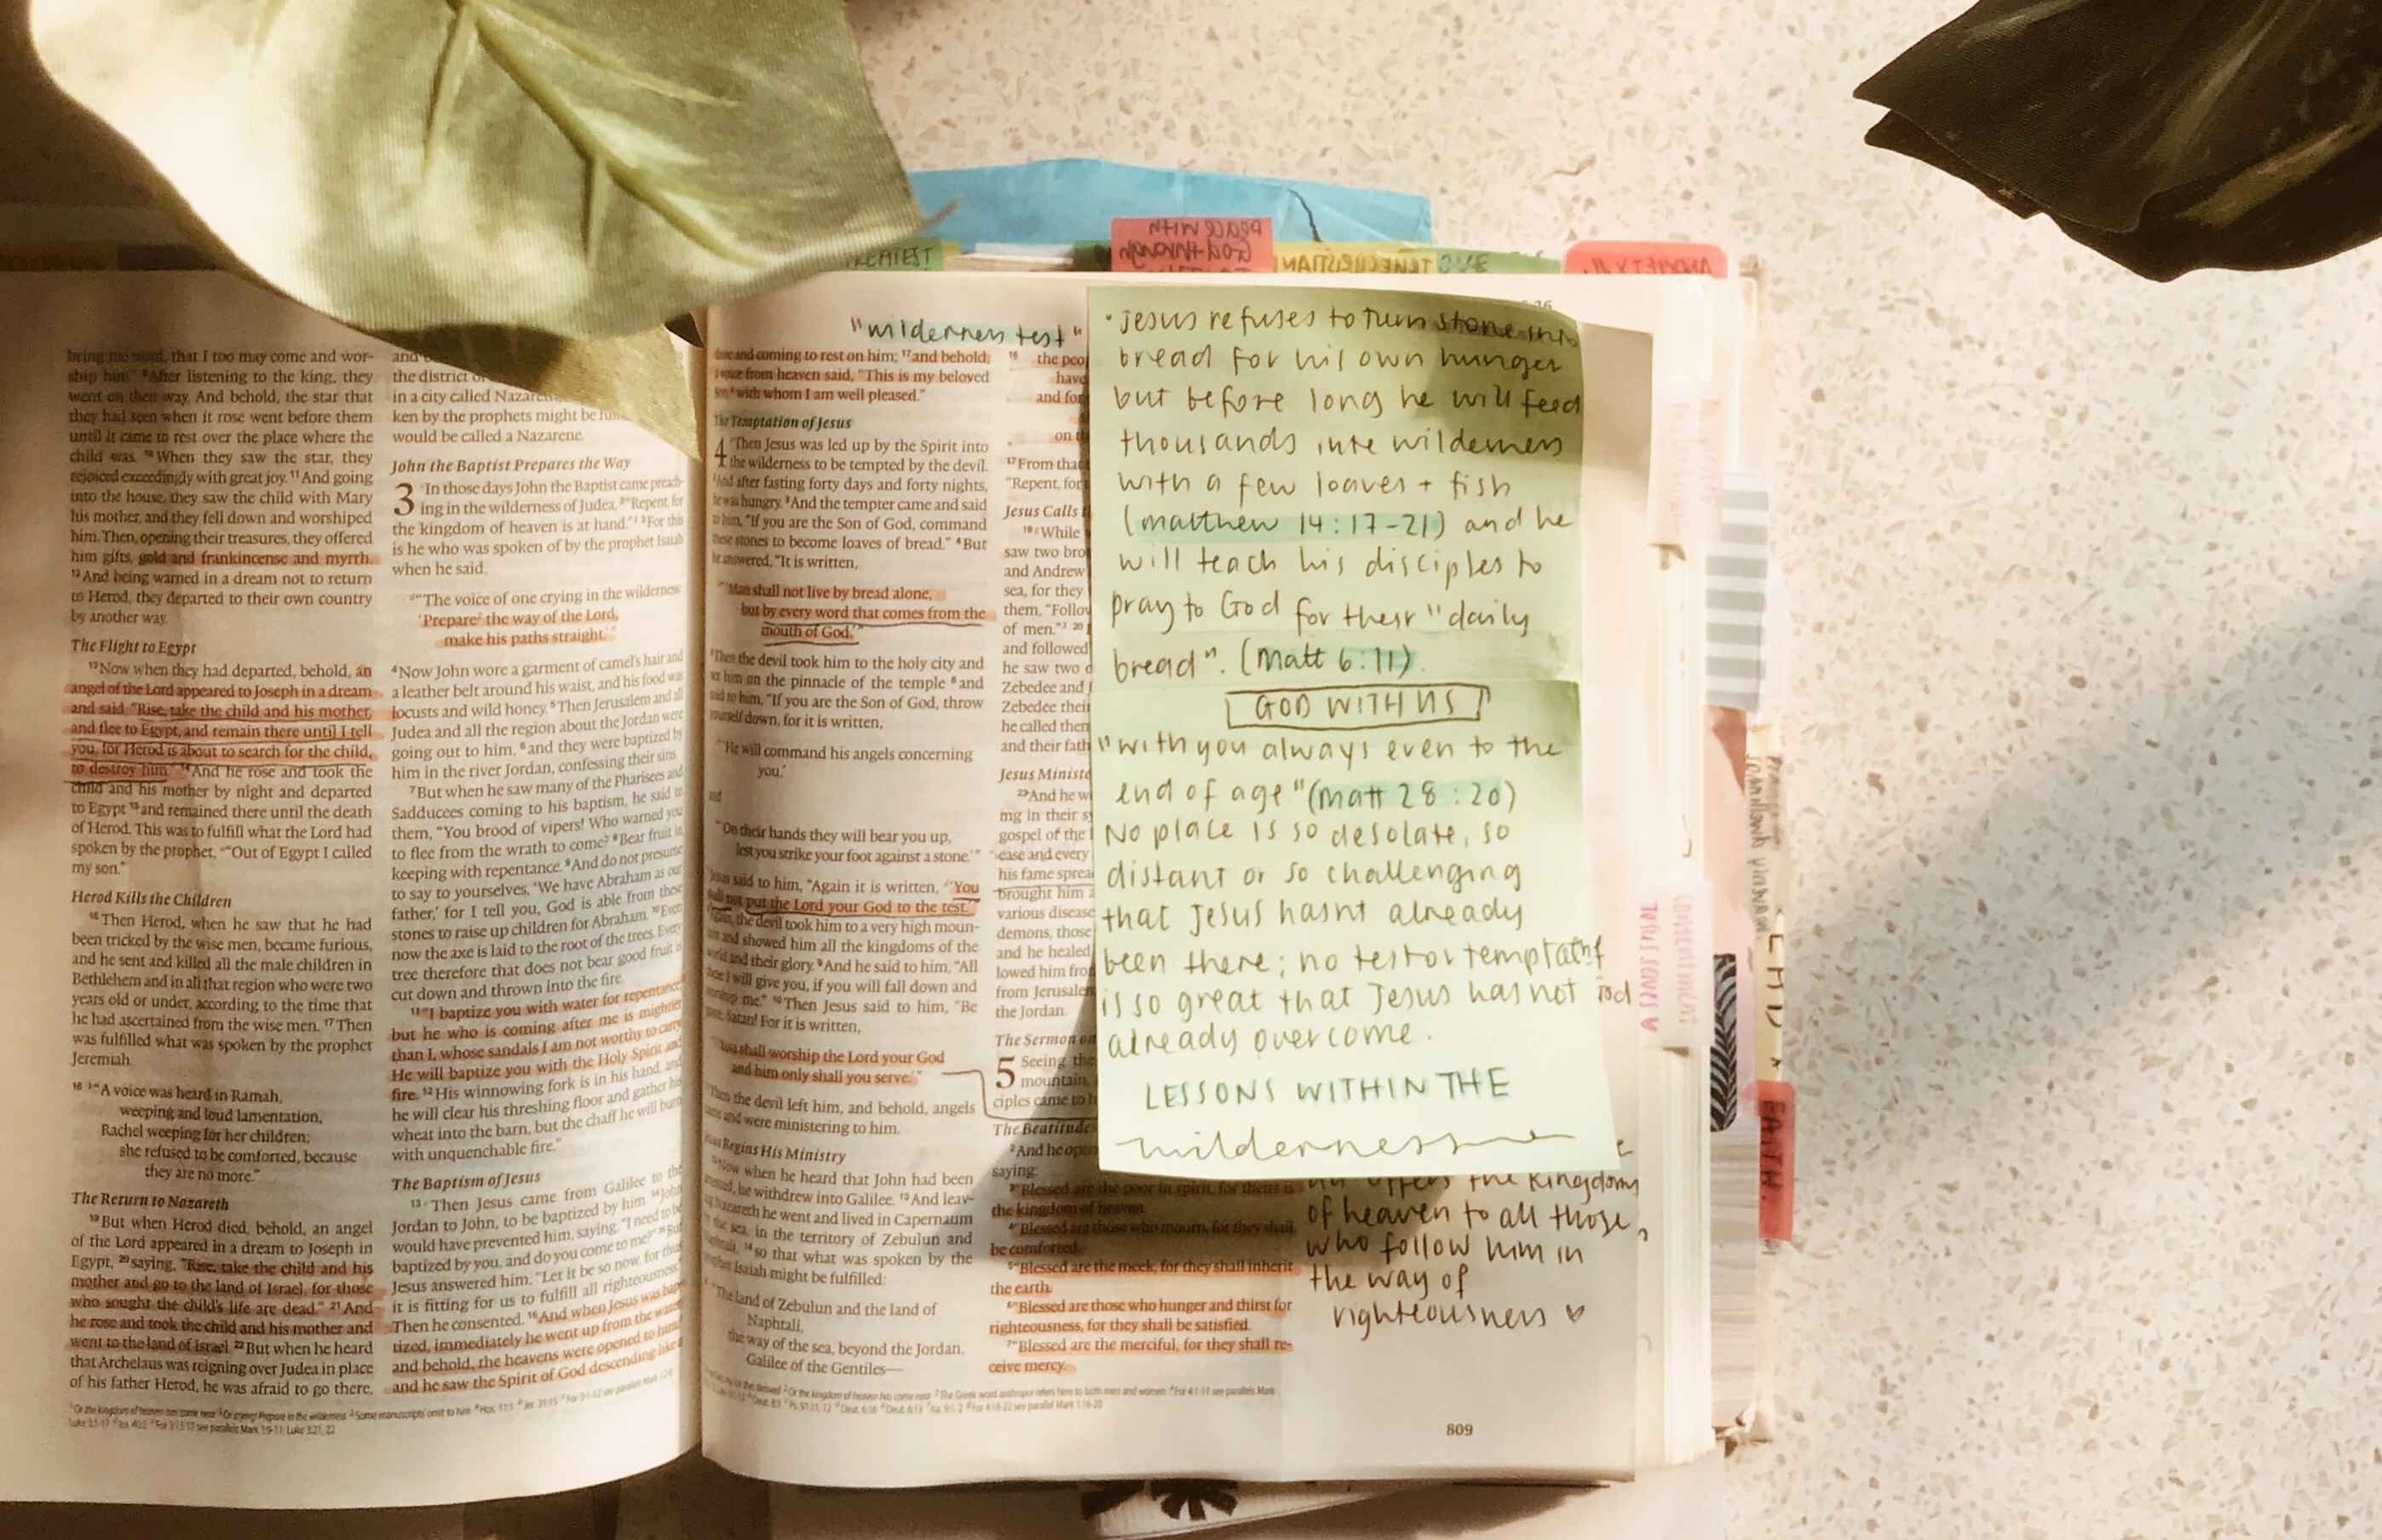 bring me word, that I too may come and wor-
ship him." 9After listening to the king, they
went on their way. And behold, the star that
they had seen when it rose went before them
until it came to rest over the place where the
child was. 10When they saw the star, they
rejoiced exceedingly with great joy. 11And going
into the house, they saw the child with Mary
his mother, and they fell down and worshiped
him. Then, opening their treasures, they offered
him gifts, gold and frankincense and myrrh.
12And being warned in a dream not to return
to Herod, they departed to their own country
by another way.
The Flight to Egypt
13Now when they had departed, behold, an
angel of the Lord appeared to Joseph in a dream
and said, "Rise, take the child and his mother,
and flee to Egypt, and remain there until I tell
you, for Herod is about to search for the child,
to destroy him." 14And he rose and took the
child and his mother by night and departed
to Egypt 15and remained there until the death
of Herod. This was to fulfill what the Lord had
spoken by the prophet, "Out of Egypt I called
my son."
Herod Kills the Children
16Then Herod, when he saw that he had
been tricked by the wise men, became furious,
and he sent and killed all the male children in
Bethlehem and in all that region who were two
years old or under, according to the time that
he had ascertained from the wise men. 17Then
was fulfilled what was spoken by the prophet
Jeremiah:
18 "A voice was heard in Ramah,
weeping and loud lamentation,
Rachel weeping for her children;
she refused to be comforted, because
they are no more."
The Return to Nazareth
19But when Herod died, behold, an angel
of the Lord appeared in a dream to Joseph in
Egypt, 20saying, "Rise, take the child and his
mother and go to the land of Israel, for those
who sought the child's life are dead." 21And
he rose and took the child and his mother and
went to the land of Israel. 22But when he heard
that Archelaus was reigning over Judea in place
of his father Herod, he was afraid to go there,
and
the district of
in a city called Nazareth
ken by the prophets might be
would be called a Nazarene.
John the Baptist Prepares the Way
3 In those days John the Baptist came preach-
ing in the wilderness of Judea, 2"Repent, for
the kingdom of heaven is at hand." 3For this
is he who was spoken of by the prophet Isaiah
when he said,
"The voice of one crying in the wilderness:
'Prepare the way of the Lord;
make his paths straight.'"
4Now John wore a garment of camel's hair and
a leather belt around his waist, and his food was
locusts and wild honey. 5Then Jerusalem and all
Judea and all the region about the Jordan were
going out to him, 6and they were baptized by
him in the river Jordan, confessing their sins.
7But when he saw many of the Pharisees and
Sadducees coming to his baptism, he said to
them, "You brood of vipers! Who warned you
to flee from the wrath to come? 8Bear fruit in
keeping with repentance. 9And do not presume
to say to yourselves, 'We have Abraham as our
father,' for I tell you, God is able from these
stones to raise up children for Abraham. 10Even
now the axe is laid to the root of the trees. Every
tree therefore that does not bear good fruit is
cut down and thrown into the fire.
11"I baptize you with water for repentance,
but he who is coming after me is mightier
than I, whose sandals I am not worthy to carry.
He will baptize you with the Holy Spirit and
fire. 12His winnowing fork is in his hand, and
he will clear his threshing floor and gather his
wheat into the barn, but the chaff he will burn
with unquenchable fire."
The Baptism of Jesus
13Then Jesus came from Galilee to the
Jordan to John, to be baptized by him. 14John
would have prevented him, saying, "I need to be
baptized by you, and do you come to me?" 15But
Jesus answered him, "Let it be so now, for thus
it is fitting for us to fulfill all righteousness."
Then he consented. 16And when Jesus was bap-
tized, immediately he went up from the water,
and behold, the heavens were opened to him,
and he saw the Spirit of God descending like a
"wilderness test"
dove and coming to rest on him; 17and behold,
a voice from heaven said, "This is my beloved
Son, with whom I am well pleased."
The Temptation of Jesus
4 Then Jesus was led up by the Spirit into
the wilderness to be tempted by the devil.
2And after fasting forty days and forty nights,
he was hungry. 3And the tempter came and said
to him, "If you are the Son of God, command
these stones to become loaves of bread." 4But
he answered, "It is written,
"'Man shall not live by bread alone,
but by every word that comes from the
mouth of God.'"
5Then the devil took him to the holy city and
set him on the pinnacle of the temple 6and
said to him, "If you are the Son of God, throw
yourself down, for it is written,
"'He will command his angels concerning
you,'
and
"'On their hands they will bear you up,
lest you strike your foot against a stone.'"
7Jesus said to him, "Again it is written, 'You
shall not put the Lord your God to the test.'"
8Again, the devil took him to a very high moun-
tain and showed him all the kingdoms of the
world and their glory. 9And he said to him, "All
these I will give you, if you will fall down and
worship me." 10Then Jesus said to him, "Be
gone, Satan! For it is written,
"'You shall worship the Lord your God
and him only shall you serve.'"
11Then the devil left him, and behold, angels
came and were ministering to him.
Jesus Begins His Ministry
12Now when he heard that John had been
arrested, he withdrew into Galilee. 13And leav-
ing Nazareth he went and lived in Capernaum
by the sea, in the territory of Zebulun and
Naphtali, 14so that what was spoken by the
prophet Isaiah might be fulfilled:
15 "The land of Zebulun and the land of
Naphtali,
the way of the sea, beyond the Jordan,
Galilee of the Gentiles—
16 the peo
have
and for
on th
17From that
"Repent, for
Jesus Calls
18While
saw two bro
and Andrew
sea, for they
them, "Follow
of men." 20
and followed
he saw two
Zebedee and J
Zebedee their
he called them
and their fath
Jesus Ministe
23And he w
ing in their sy
gospel of the
ease and every
his fame sprea
brought him a
various disease
demons, those
and he healed
lowed him from
from Jerusalem
the Jordan.
The Sermon on
5 Seeing the
mountain,
ciples came to h
The Beatitudes
2And he open
saying:
3"Blessed are the poor in spirit, for theirs is
the kingdom of heaven.
4"Blessed are those who mourn, for they shall
be comforted.
5"Blessed are the meek, for they shall inherit
the earth.
6"Blessed are those who hunger and thirst for
righteousness, for they shall be satisfied.
7"Blessed are the merciful, for they shall re-
ceive mercy.
809
• Jesus refuses to turn stone into
bread for his own hunger
but before long he will feed
thousands in the wilderness
with a few loaves + fish
(matthew 14:17-21) and he
will teach his disciples to
pray to God for their "daily
bread". (Matt 6:11).
GOD WITH US
"with you always even to the
end of age" (Matt 28:20)
No place is so desolate, so
distant or so challenging
that Jesus hasnt already
been there; no test or temptation
is so great that Jesus has not
already overcome.
LESSONS WITHIN THE
wilderness
offers the kingdom
of heaven to all those
who follow him in
the way of
righteousness
peace with
God through
TRUE CHRISTIAN
ANXIETY
FAITH.